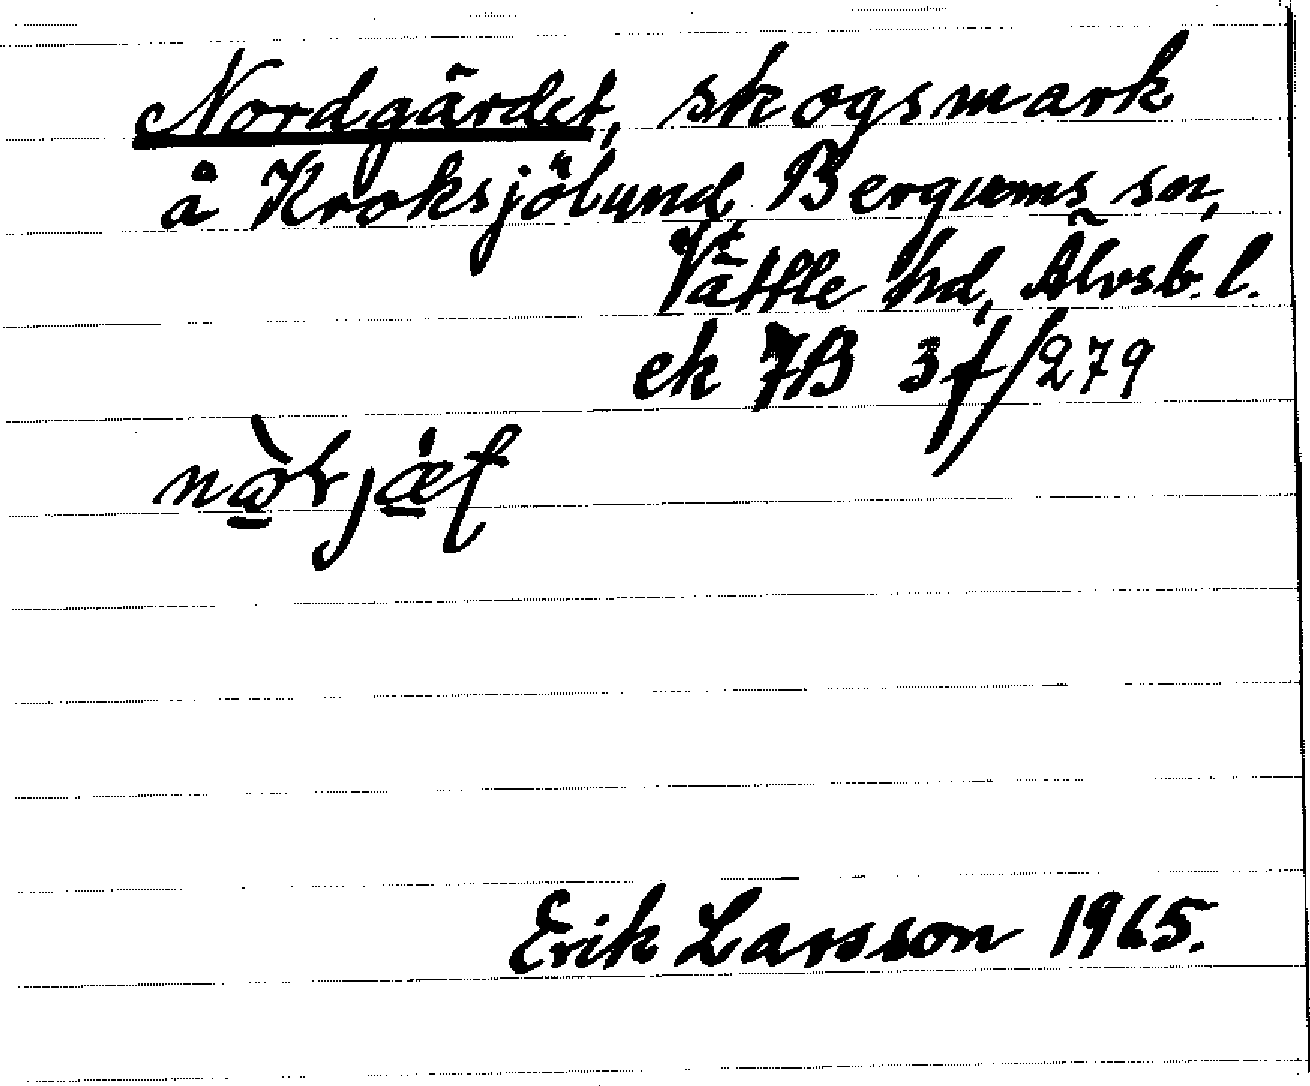 Nordgärdet, skogsmark
å Kroksjölund Bergums sn,
Vättle hd, Älvsb. l.
ek 7B 3f/279
Erik Larsson 1965.